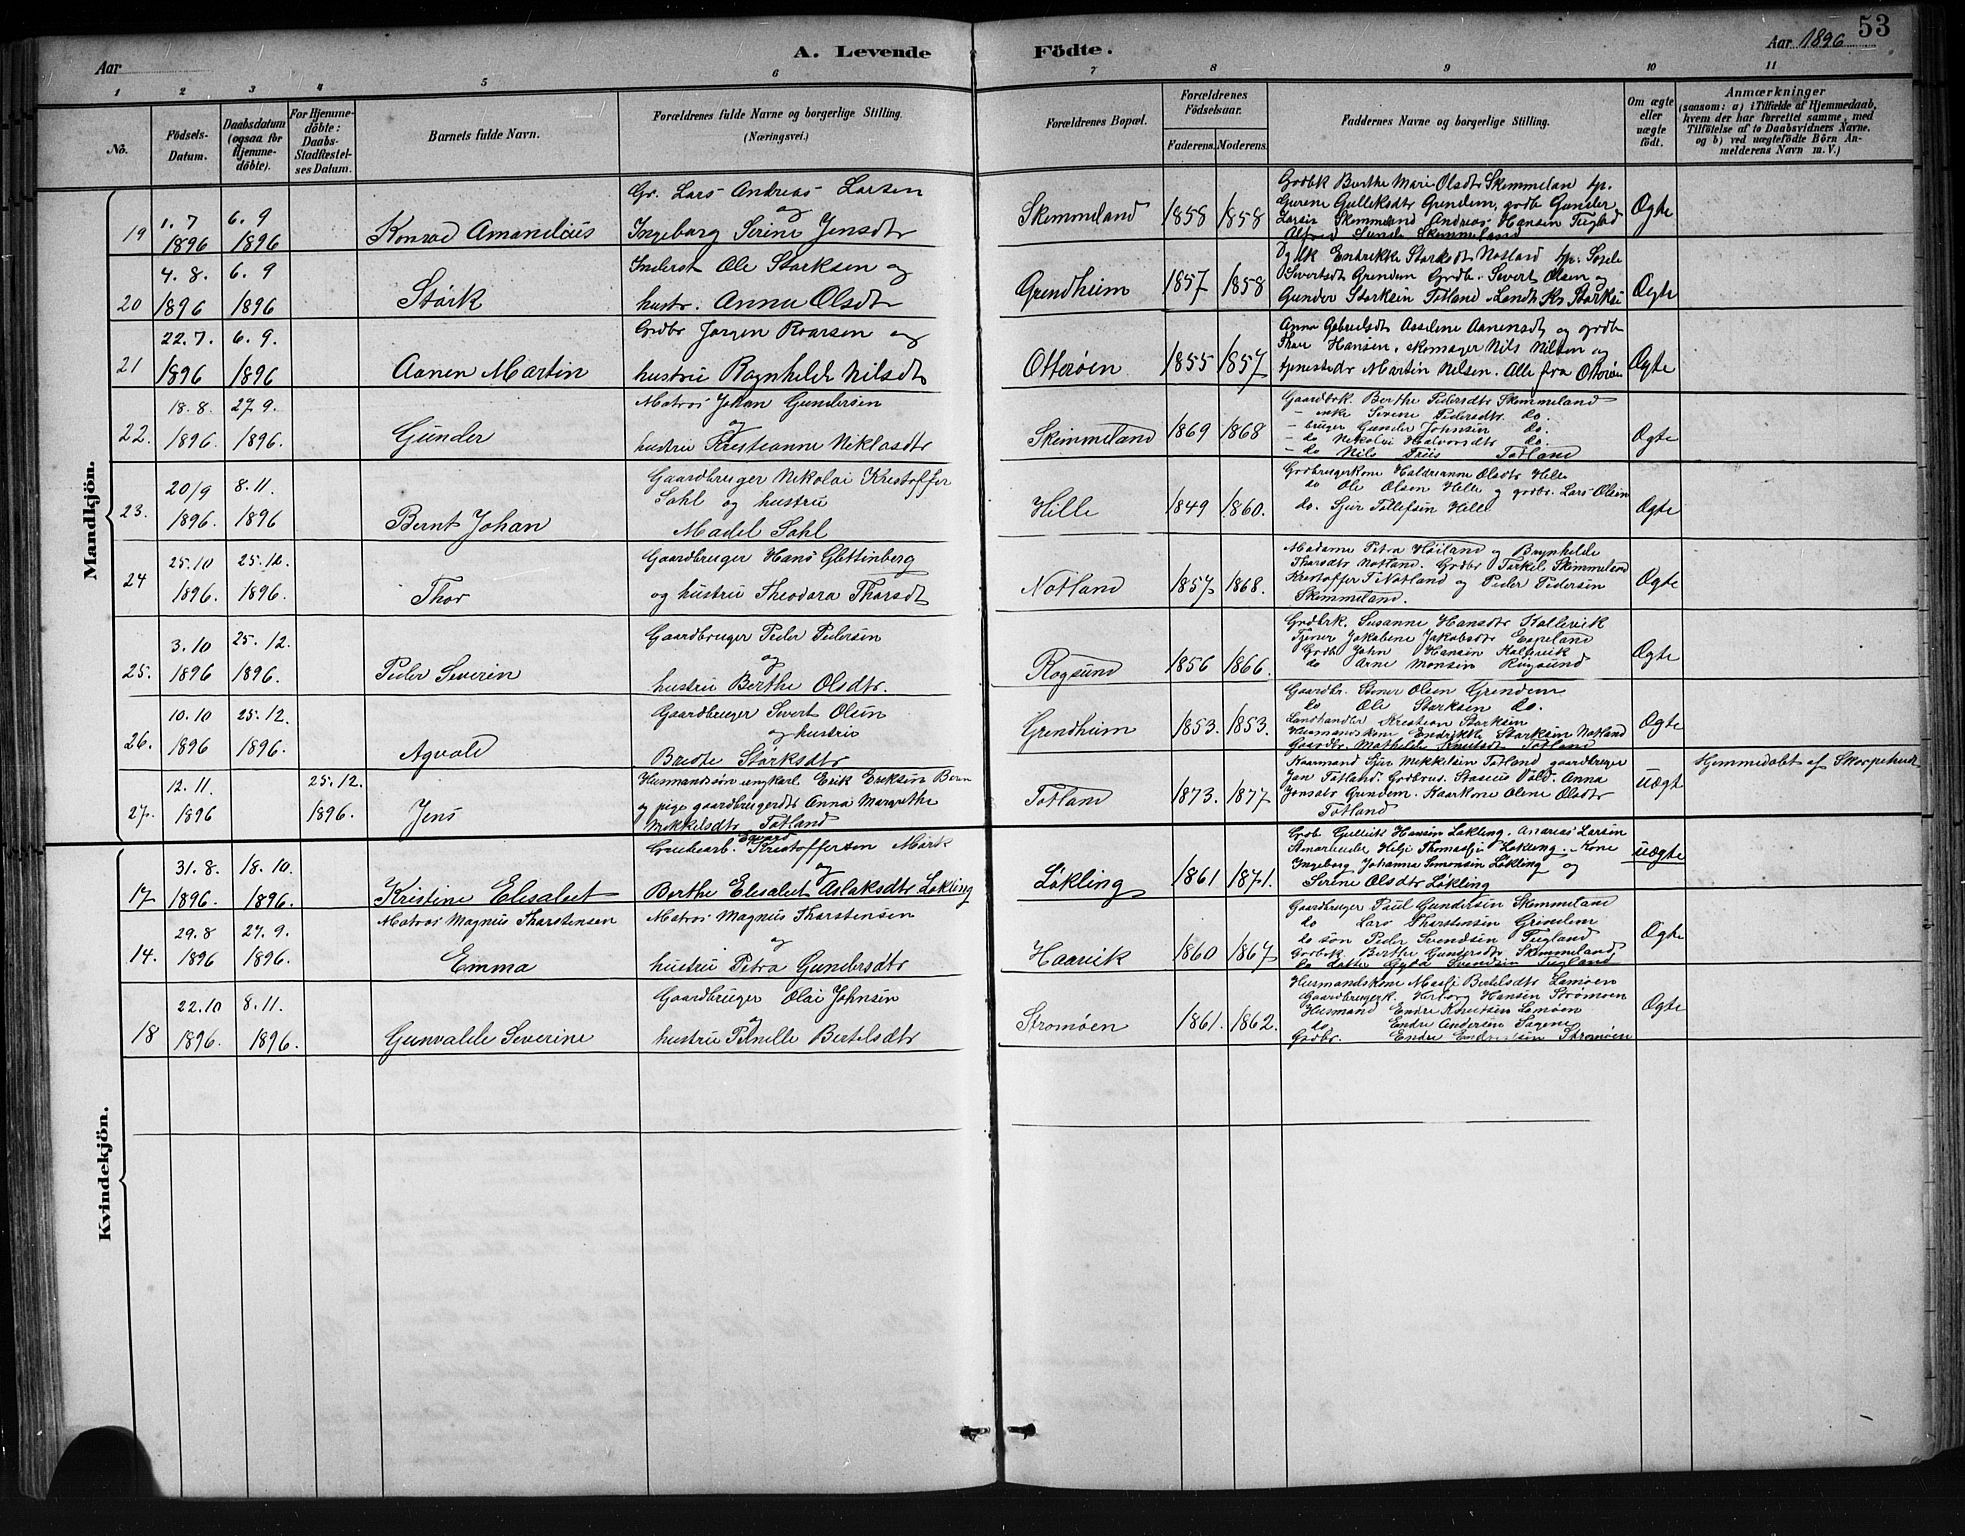 53
A. Levende Födte.
Aar
Aar 1896
1 2 3 4 5 6 7 8 9 10 11
No.
Födsels-Datum.
Daabsdatum (ogsaa for Hjemme-döbte).
For Hjemme-döbte: Daabs-Stadfæstel-ses Datum.
Barnets fulde Navn.
Forældrenes fulde Navne og borgerlige Stilling. (Næringsvei.)
Forældrenes Bopæl.
Forældrenes Födselsaar.
Faderens. Moderens.
Faddernes Navne og borgerlige Stilling.
Om ægte eller uægte födt.
Anmærkninger
(saasom: a) i Tilfælde af Hjemmedaab, hvem der har forrettet samme, med Tilföielse af to Daabsvidners Navne. og b) ved uægtefödte Börn Anmelderens Navn m. V.)
Mandkjön.
19 1.7 1896 6.9 1896 Konrad Amandius
Gr. Lars Andreas Larsen
og
Ingeborg Serine Jensdtr
Skemmeland 1858 1858
Grdbk Berthe Mari Olsdtr Skemmelan
Gurene Gulleksdtr Grendem, grdb Gunder
Larsin Skemmeland Andreas Hansen Tugland
Alfred Lunde Skemmeland
Ægte
20 4.8. 1896 6.9 1896 Störk
Inderst Ole Storksen og
hustr. Anna Olsdtr
Grendheim 1857 1858
Endrikke Storksdtr Notland
Sivertsdt Grendem Grdb. Severt Olsen og
Gunder Storksin Totland Landh Kr Storksi
Ægte
21 22.7. 1896 6.9. 1896 Aanen Martin
Grdbr Jørgen Roarsen og
hustru Ragnhilde Nilsdtr
Otterøen 1855 1857
Anna Gabrielsdt Asseline Aanensdt og grdbr
Thor Hansen, skomager Nils Nilsen og
tjenestedr Martin Nilsen. Alle fra Otterøen
Ægte
22. 18.8. 1896. 27.9. 1896. Gunder
Matros Johan Gundersen
og
hustru Kristianne Niklasdtr
Skemmeland 1869 1868
Gaardbrk. Berthe Pedersdtr Skemmeland
- enke Serene Pedersdtr. do.
- bruger Gunder Johnsen do.
- do Nikolai Halvorsdtr do.
- do Nils Friis Totland
Ægte
23. 20/9 1896. 8.11. 1896 Bernt Johan
Gaardbruger Nikolai Kristoffer
Sahl og hustru
Madel Sahl
Hille 1849 1860.
Grdbrugerkone Haldrianne Olsdtr Hille
do Ole Olsen Hille og grdbr. Lars Olsen
do. Sjur Tollefsen Hille
Ægte
24 25.10 1896. 25.12. 1896. Thor
Gaardbruger Hans Glottenberg
og hustru Theodora Thorsdt
Notland 1857 1868.
Madame Petra Høiland og Brynhilde
Thorsdtr Notland. Grdbr Terkel Skimmeland
Kristoffer T. Notland og Peder Pedersen
Skemmeland.
Ægte
25. 3.10 1896 25.12. 1896. Peder Severin
Gaardbruger Peder Pedersen
og
hustru Berthe Olsdtr.
Rogsund 1856 1866.
Grdbrk. Susanne Hansdtr Kallevik
Tjener Jakobine Jakobsdtr Espeland
Grdb John Hansen Kallevik
do Arne Monsen Rugsund
Ægte
26. 10.10 1896 25.12. 1896. Agvald
Gaardbruger Severt Olsen
og hustru
Bredte Störksdtr
Grendheim 1853. 1853.
Gaardbr. Stener Olsen Grendem
do Ole Storksen do.
Landhandler Kristian Storksin
Husmandskone Endrikke Storksin Notland
Gaardbr. Mathilde Knutsdt Totland
Ægte
27. 12.11. 1896 25.12. 1896. Jens
Husmandssøn ungkarl Erik Eriksen Bern
og pige gaardbrugerdtr Anna Margrethe
Mikkelsdtr Totland
Totland 1873. 1877
Kaarmand Sjur Mikkelsin Totland gaardbruger
Jan Totland. Anna
Jonsdtr Grendem. Kaarkone Olene Olsdtr
Totland
uægt
Hjemmedøbt af
Kvindekjön.
17 31.8. 1896. 18.10. 1896. Kristine Elesabet
Grubearb. Edvard Kristoffersen Mörk
og
Berthe Elesabet Aslaksdtr Løkling
Løkling 1861 1871.
Grdb Gullick Hansen Løkling. Andreas Larsen
Kone
Ingeborg Johanna Simonsen Løkling og
Serine Olsdtr Løkling
uægte
14. 29.8 1896 27.9. 1896.
Matros Magnus Tharstensen
Emma
Matros Magnus Tharstensen
og
hustru Petra Gundersdtr
Haarvik 1860 1867
Gaardbruger Paul Gundersen Skemmeland
do Lars Tharstensen Grindem
do søn Peder Svendsen Tugland
Grdbrk Berthe Gundersdtr Skemmeland
do datter Gyda Svendsen Tugland
Ægte
18 22.10 1896. 8.11. 1896. Gunvalde Severine
Gaardbruger Olai Johnsen
og
hustru Pernelle Bertelsdtr
Stromøen 1861. 1862.
Husmandskone Masli Bertelsdtr Lamøen
Gaardbrugerk. Herborg Hansen Stromøen
Husmand Endre Knudsen Lamøen
do Endre Andersen
Grdbr. Endre Endresen Stromøen
Ægte